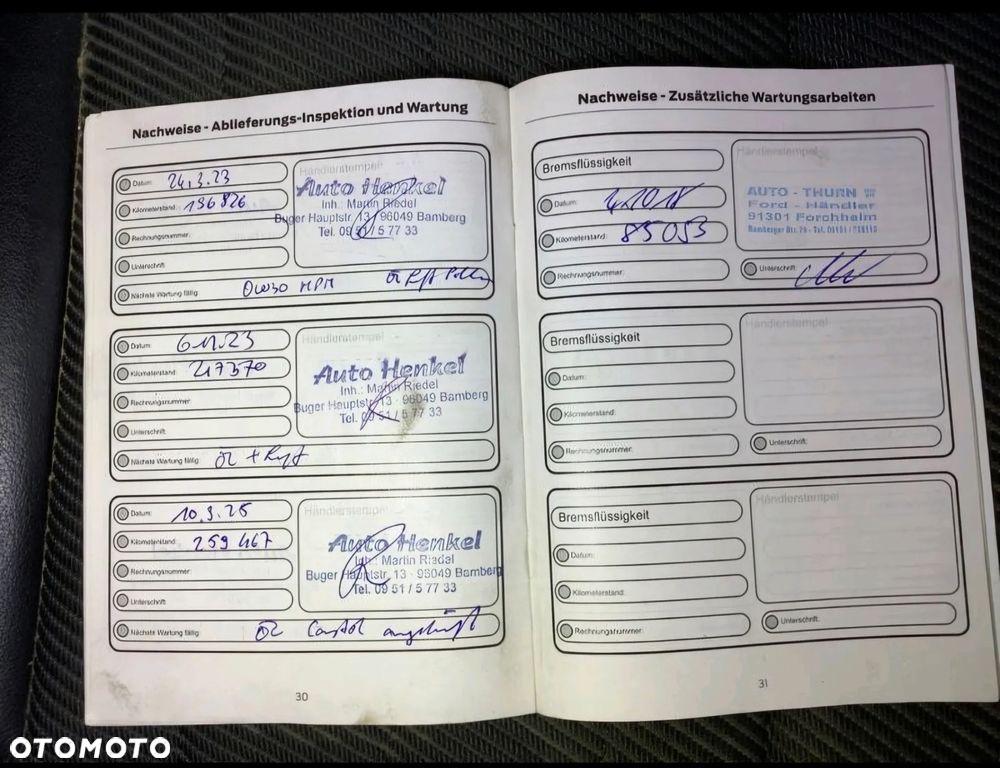 Nachweise - Ablieferungs-Inspektion und Wartung
Händlerstempel
Datum: 24.3.23
Kilometerstand: 196826
Rechnungsnummer:
Unterschrift:
Auto Henkel
Inh.: Martin Riedel
Buger Hauptstr. 13 · 96049 Bamberg
Tel. 09 51 / 5 77 33
Nächste Wartung fällig: 0W30
Händlerstempel
Datum: 6.11.23
Kilometerstand: 217370
Rechnungsnummer:
Unterschrift:
Auto Henkel
Inh.: Martin Riedel
Buger Hauptstr. 13 · 96049 Bamberg
Tel. 09 51 / 5 77 33
Nächste Wartung fällig: Öl +
Händlerstempel
Datum: 10.3.25
Kilometerstand: 259467
Rechnungsnummer:
Unterschrift:
Auto Henkel
Inh.: Martin Riedel
Buger Hauptstr. 13 · 96049 Bamberg
Tel. 09 51 / 5 77 33
Nächste Wartung fällig: Öl Castrol
30
Nachweise - Zusätzliche Wartungsarbeiten
Bremsflüssigkeit
Händlerstempel
Datum:
Kilometerstand: 85053
Rechnungsnummer:
AUTO - THURN
Ford - Händler
91301 Forchheim
Bamberger Str.
Unterschrift:
Bremsflüssigkeit
Händlerstempel
Datum:
Kilometerstand:
Rechnungsnummer:
Unterschrift:
Bremsflüssigkeit
Händlerstempel
Datum:
Kilometerstand:
Rechnungsnummer:
Unterschrift:
31
OTOMOTO